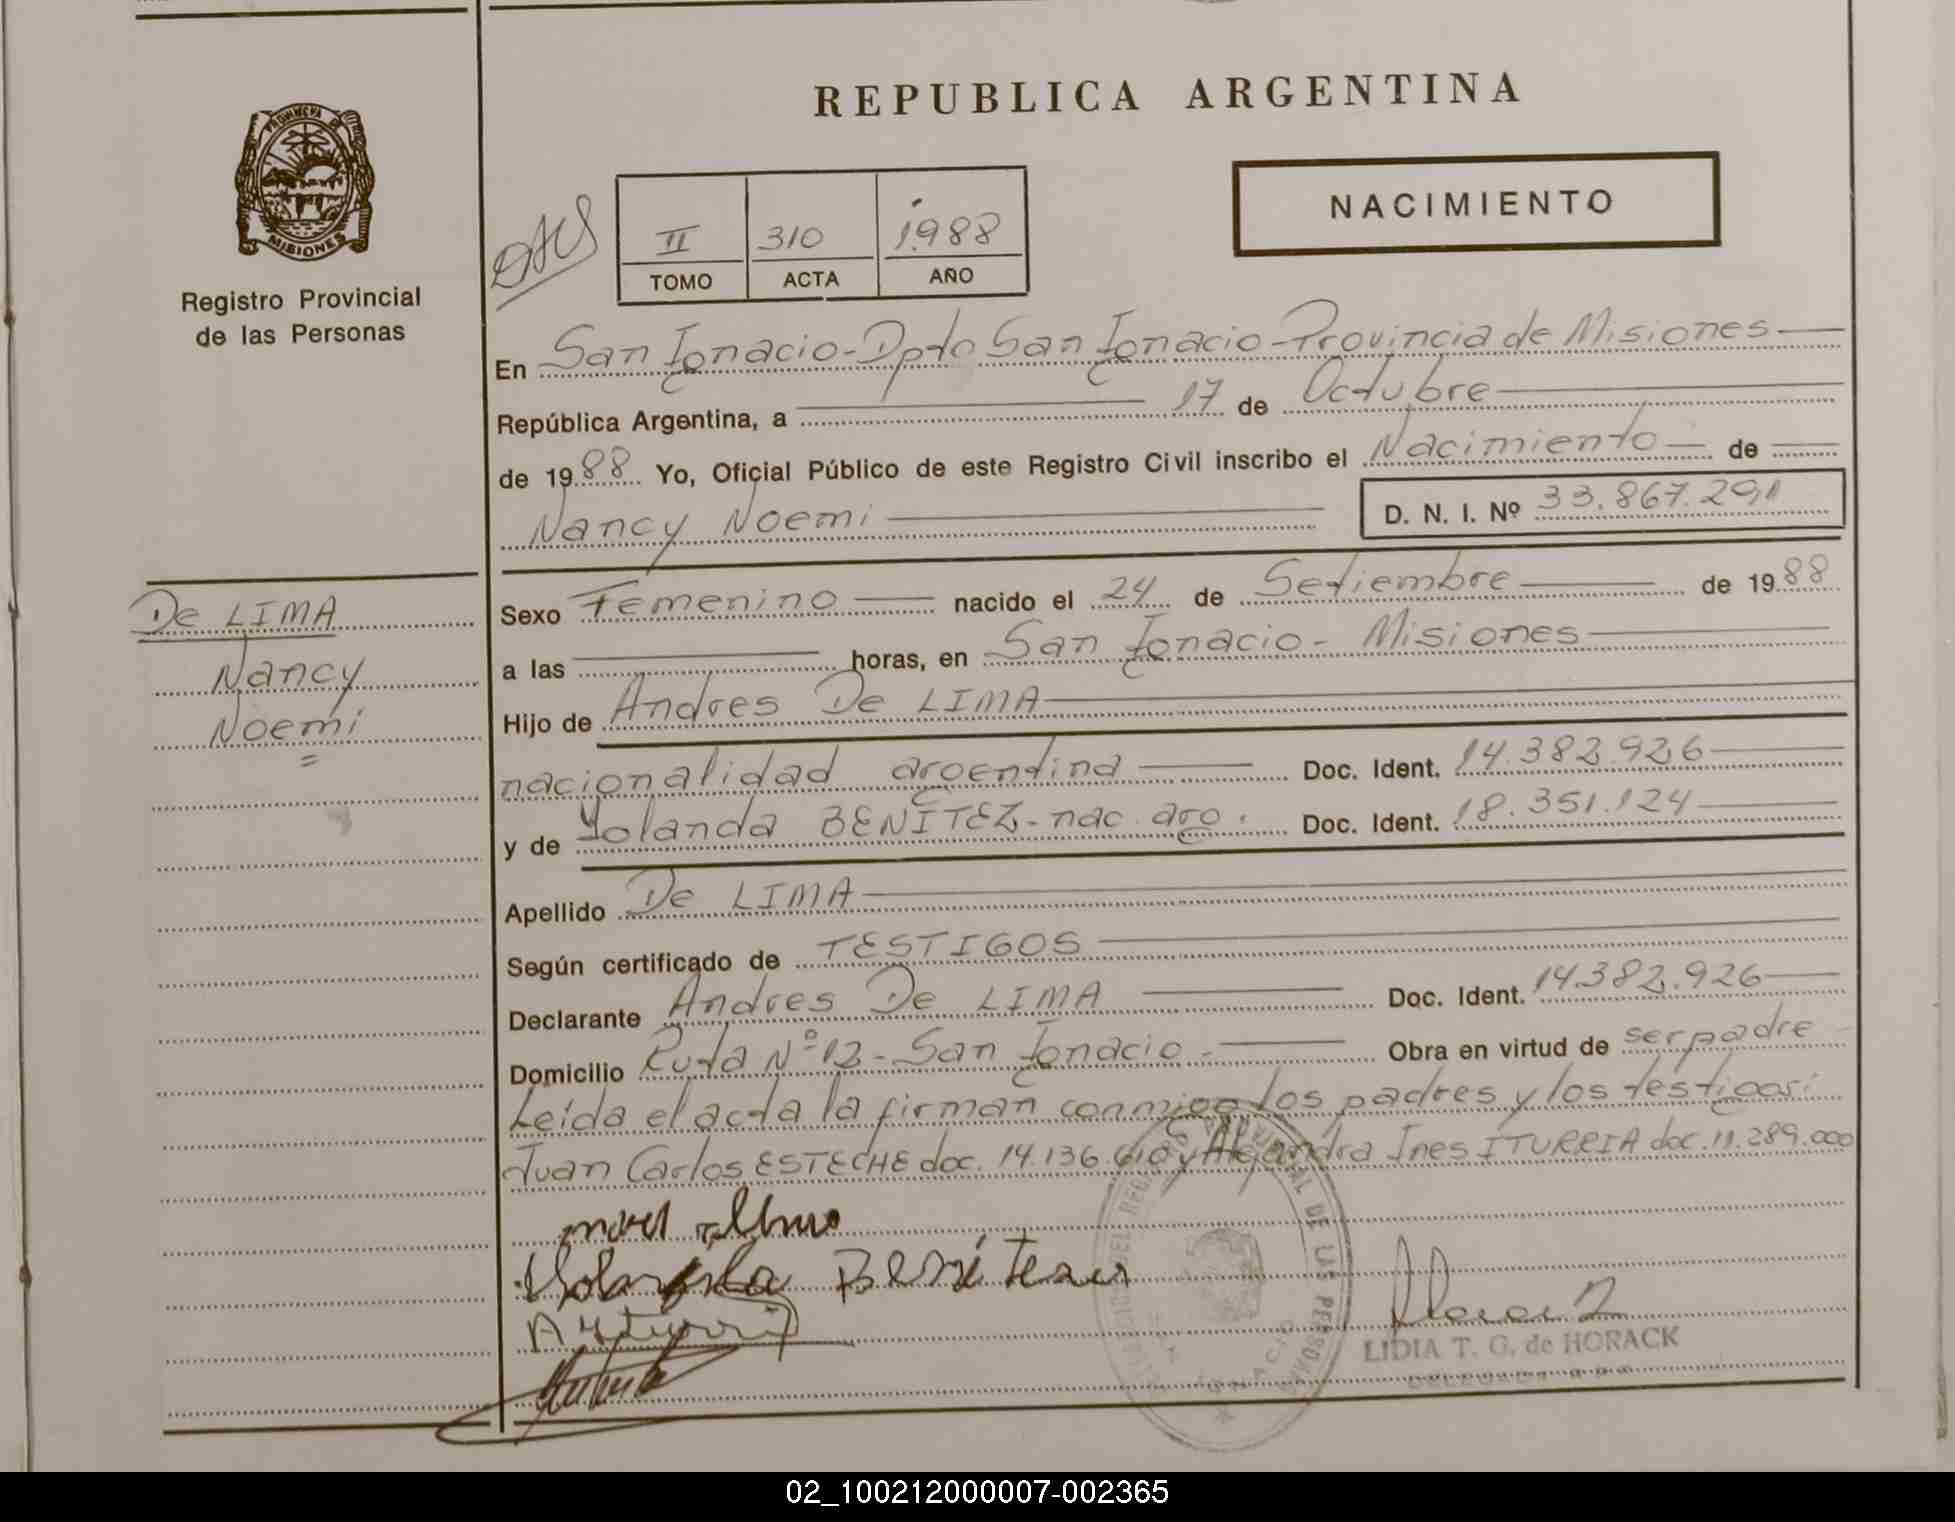 REPUBLICA ARGENTINA
PROVINCIA DE
MISIONES
Registro Provincial
de las Personas
II 310 1988
TOMO ACTA AÑO
NACIMIENTO
En San Ignacio - Dpto San Ignacio - Provincia de Misiones
República Argentina, a 17 de Octubre
de 1988 Yo, Oficial Público de este Registro Civil inscribo el Nacimiento de
Nancy Noemi D. N. I. Nº 33.867.291
De LIMA
Nancy
Noemi
Sexo Femenino nacido el 24 de Setiembre de 1988
a las horas, en San Ignacio - Misiones
Hijo de Andres De LIMA
nacionalidad argentina Doc. Ident. 14.382.926
y de Yolanda BENÍTEZ - nac. arg. Doc. Ident. 18.351.124
Apellido De LIMA
Según certificado de TESTIGOS
Declarante Andres De LIMA Doc. Ident. 14.382.926
Domicilio Ruta Nº 12 - San Ignacio - Obra en virtud de ser padre
Leída el acta la firman conmigo los padres y los testigos:
Juan Carlos ESTECHE doc. 14.136.610 y Alejandra Ines ITURRIA doc. 11.289.000
Yolanda Benítez
LIDIA T. G. de HORACK
02_100212000007-002365